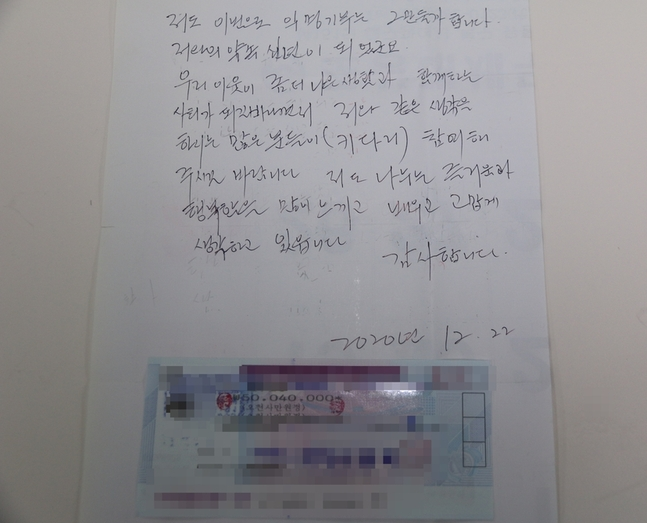 저도 이번으로 익명기부는 그만둘가 합니다.
저와의 약속 십년이 되었군요
우리 이웃이 좀 더 나은 생활과 함께하는
사회가 되길바라면서 저와 같은 생각을
하시는 많은 분들이 (키다리) 참여해
주시길 바랍니다 저도 나누는 즐거움과
행복함을 많이 느끼고 배우고 고맙게
생각하고 있습니다
감사합니다.
2020년 12. 22
₩50.040.000